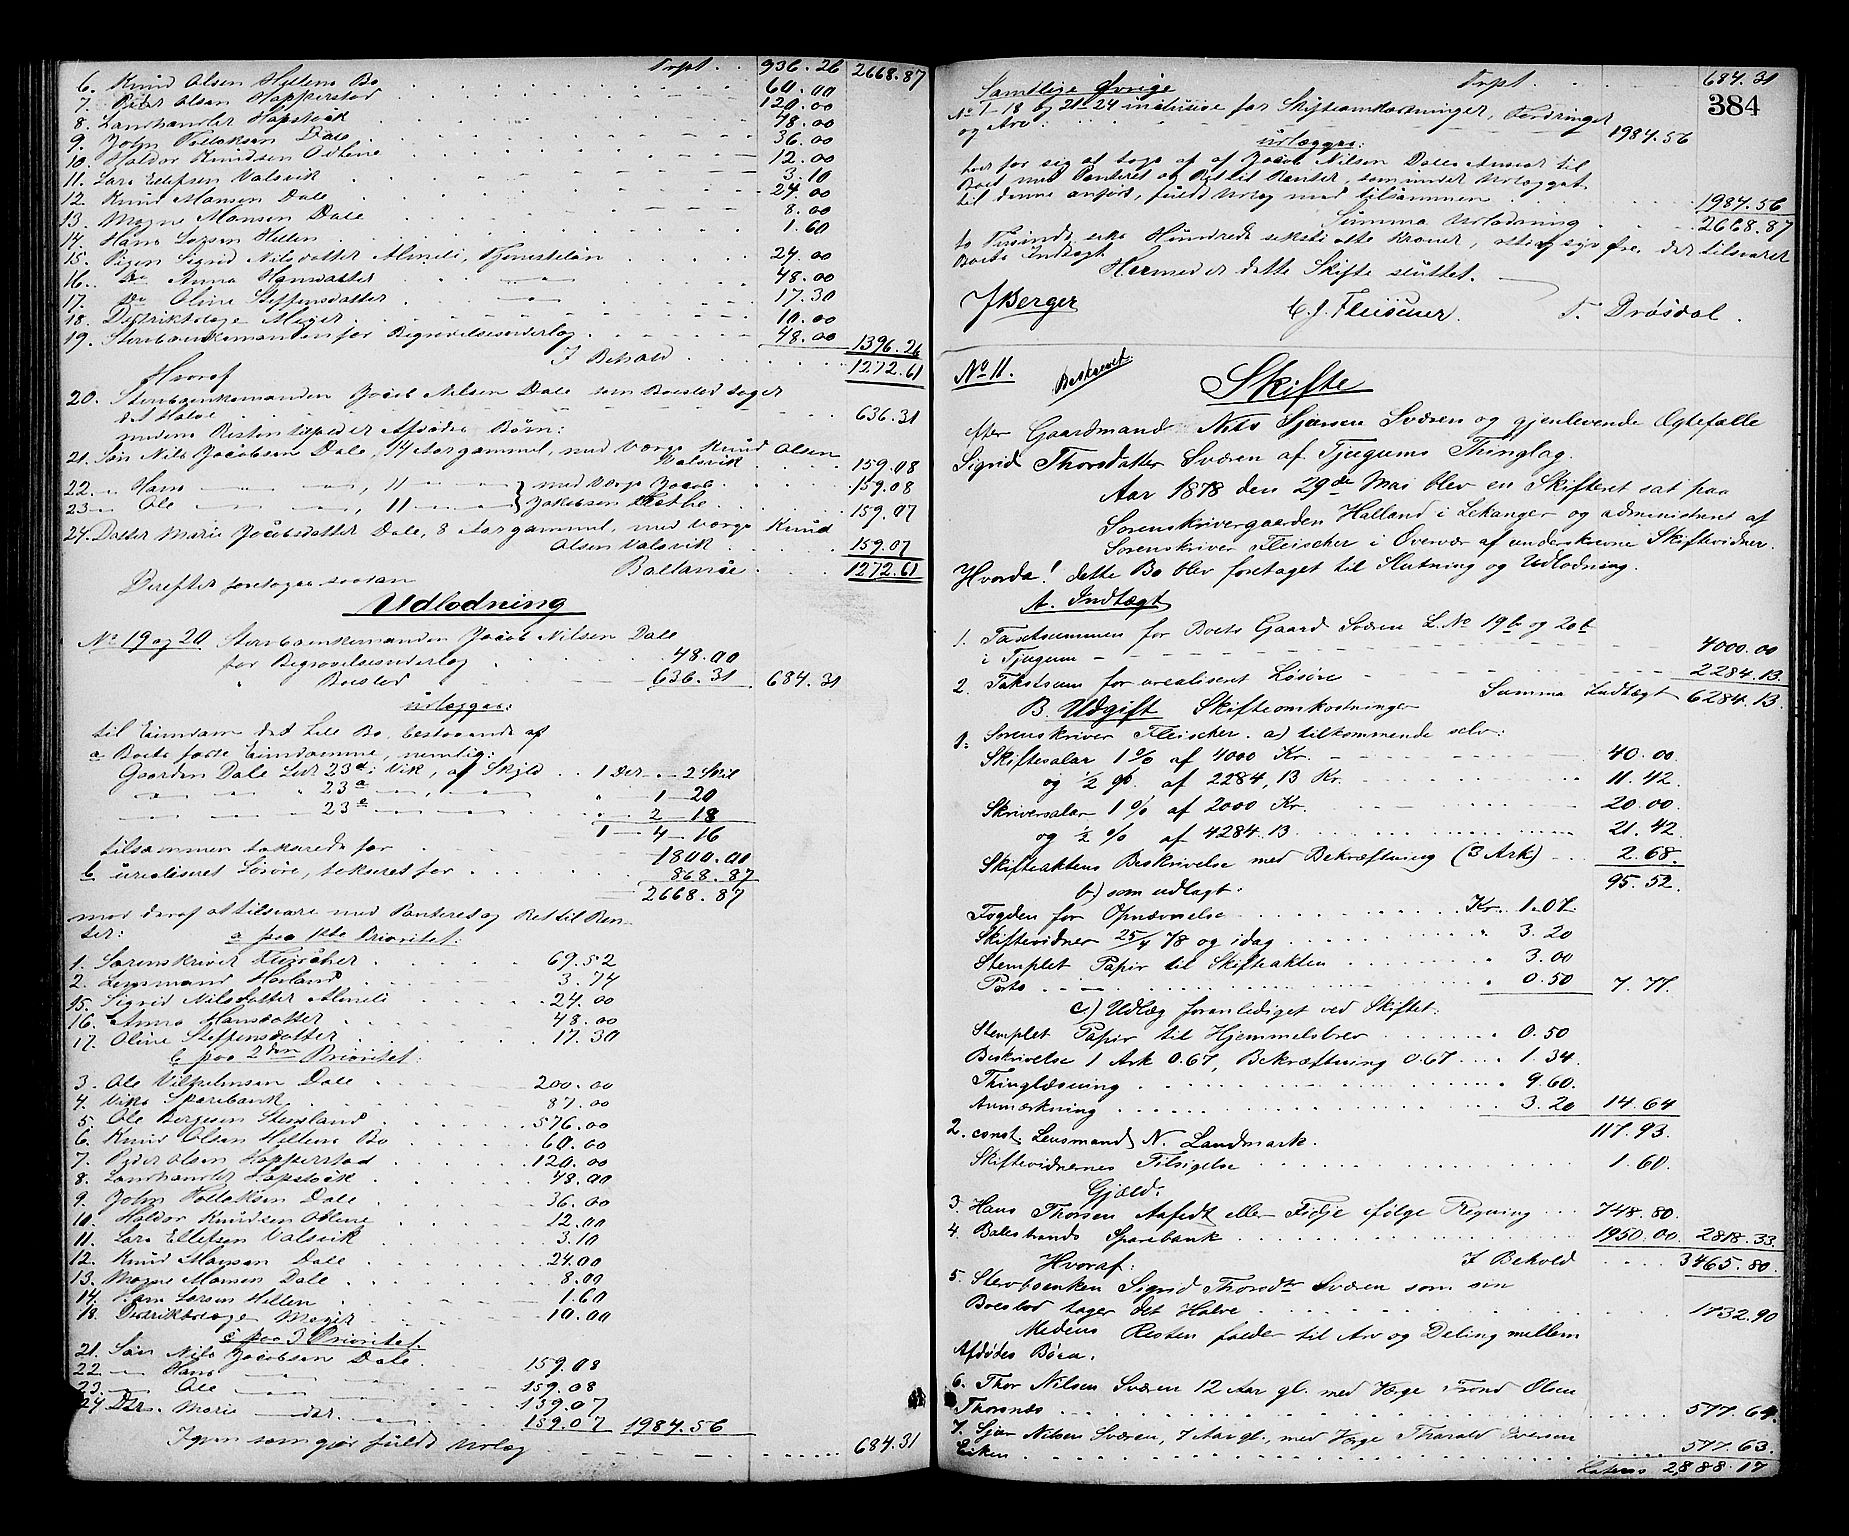 Trpt. . 936.26 2668.87
6. Knud Olsen Hellene Bo 60.00
7. Peder Olsen Hopperstad 120.00
8. Landhandler Hopstock 48.00
9. John Dale 36.00
10. Haldor Knudsen 12.00
11. Lars Ellefsen Valsvik 3.10
12. Knud Monsen Dale 24.00
13. Mogne Monsen Dale 8.00
14. Hans Larsen Hellen 1.60
15. Pigen Sigrid Nilsdatter Almeli, Tjenesteløn 24.00
16. Do Anna Hansdatter —"— 48.00
17. Do Oline Steffensdatter —"— 17.30
18. Distriktslæge Meyer 10.00
19. Stervboenkemanden for Begravelsesudlæg 48.00 1396.26
I Behold 1272.61
Hvoraf
20. Stervboenkemanden Jacob Nilsen Dale som Boeslod tager
det Halve 636.31
medens Resten tilfalder Afdødes Børn:
21. Søn Nils Jacobsen Dale, 14 Aar gammel, med Værge Knud Olsen
Valsvik 159.08
22. " Hans —"— —"—, 11 —"— med Værge Jacob 159.08
23 " Ole —"— —"—, 11 —"— Jakobsen 159.07
24. Datter Marie Jacobsdatter Dale, 8 Aar gammel, med Værge Knud
Olsen Valsvik 159.07
Ballance 1272.61
Derefter foretoges saadan
Udlodning
No 19 og 20 Stervboenkemanden Jacob Nilsen Dale
for Begravelsesudlæg 48.00
" Boeslod 636.31 684.31
udlægges:
til Eiendom det hele Bo, bestaaende af
a Boets faste Eiendomme, nemlig:
Gaarden Dale Lnr 23d i Vik, af Skyld . . 1 Dlr " 2 Skil
—"— —"— " 23a —"—, —"— " 1 — 20
—"— —"— 23e —"— —"— " 2 — 18
1 — 4 — 16
tilsammen takserede for 1800.00
b urealiseret Løsøre, takseret for 868.87
2668.87
mod deraf at tilsvare med Panteret og Ret til Ren-
ter:
a paa 1ste Prioritet:
1. Sorenskriver Fleischer 69.52
2. Lensmand Hovland 3.74
15. Sigrid Nilsdatter Almeli 24.00
16. Anna Hansdatter 48.00
17. Oline Steffensdatter 17.30
b paa 2den Prioritet:
3. Ole Vilhelmsen Dale 200.00
4. Viks Sparebank 87.00
5. Ole Børgesen Stensland 576.00
6. Knud Olsen Hellene Bo 60.00
7. Peder Olsen Hopperstad 120.00
8. Landhandler Hopstock 48.00
9. John Dale 36.00
10. Haldor Knudsen 12.00
11. Lars Ellefsen Valsvik 3.10
12. Knud Monsen Dale 24.00
13. Mogne Monsen Dale 8.00
14. Hans Larsen Hellen 1.60
18. Distriktslæge Meyer 10.00
c paa 3 Prioritet.
21. Søn Nils Jacobsen Dale 159.08
22 —"— Hans —"— —"— 159.08
23. —"— Ole —"— —"— 159.07
24 Dtr. Marie —dtr. —"— 159.07 1984.56
Igjen som gjør fuldt Udlæg 684.31
Trpt. 684.31
384
Samtlige Øvrige
No 1-18 og 21-24 inclusive for Skifteomkostninger, Fordringer
og Arv: 1984.56
udlægges:
hver for sig at tage af Jacob Nilsen Dales Ansvar til
Boet, med Panteret og Ret til Renter, som under Udlægget
til denne anført, fuldt Udlæg med tilsammen 1984.56
Summa Udlodning 2668.87
to Tusinde seks Hundrede seksti otte Kroner, otti og syv Øre, der tilsvarer
Boets Indtægt.
Hermed er dette Skifte sluttet.
J Berger C. J. Fleischer. T. Drøsdal.
No 11. Beskrevet. Skifte
efter Gaardmand Nils Sjursen Sværen og gjenlevende Ægtefælle
Sigrid Thorsdatter Sværen af Tjugums Thinglag.
Aar 1878 den 29de Mai blev en Skifteret sat paa
Sorenskrivergaarden Halland i Lekanger og administreret af
Sorenskriver Fleischer i Overvær af underskrevne Skiftevidner.
Hvorda! dette Bo blev foretaget til Slutning og Udlodning.
A. Indtægt
1. Taxtsummen for Boets Gaard Sværen L. No 19b og 20b
i Tjugum 4000.00
2. Takstsum for urealiseret Løsøre 2284.13
Summa Indtægt 6284.13
B. Udgift Skifteomkostninger
1. Sorenskriver Fleischer. a) tilkommende selv:
Skiftesalær 1 % af 4000 Kr. 40.00
og 1/2 % af 2284,13 Kr. 11.42
Skriversalær 1 % af 2000 Kr. 20.00
og 1/2 % af 4284.13 21.42
Skifteaktens Beskrivelse med Bekræftning (3 Ark) 2.68
95.52
b) som udlagt:
Fogden for Opnævnelse Kr. 1.07
Skiftevidner 25/4 78 og idag " 3.20
Stemplet Papir til Skifteakten " 3.00
Porto " 0.50 7.77
c) Udlæg foranlediget ved Skiftet:
Stemplet Papir til Hjemmelsbrev " 0.50
Beskrivelse 1 Ark 0.67, Bekræftning 0.67 " 1.34
Thinglæsning " 9.60
Anmærkning 3.20 14.64
117.93
2. const. Lensmand N. Landmark.
Skiftevidnernes Tilsigelse 1.60
Gjæld.
3. Hans Thorsen Aafedt eller Fedje ifølge Regning 748.80
4. Balestrands Sparebank 1950.00 2818.33
Hvoraf: I Behold 3465.80
5. Stervboenken Sigrid Thorsdtr Sværen som sin
Boeslod tager det Halve 1732.90
Medens Resten falder til Arv og Deling mellem
Afdødes Børn.
6. Thor Nilsen Sværen 12 Aar gl. med Værge Trond Olsen
Thorsnæs 577.64
7. Sjur Nilsen Sværen, 7 Aar gl., med Værge Tharald Iversen
Eiken 577.63
Lateris 2888.17